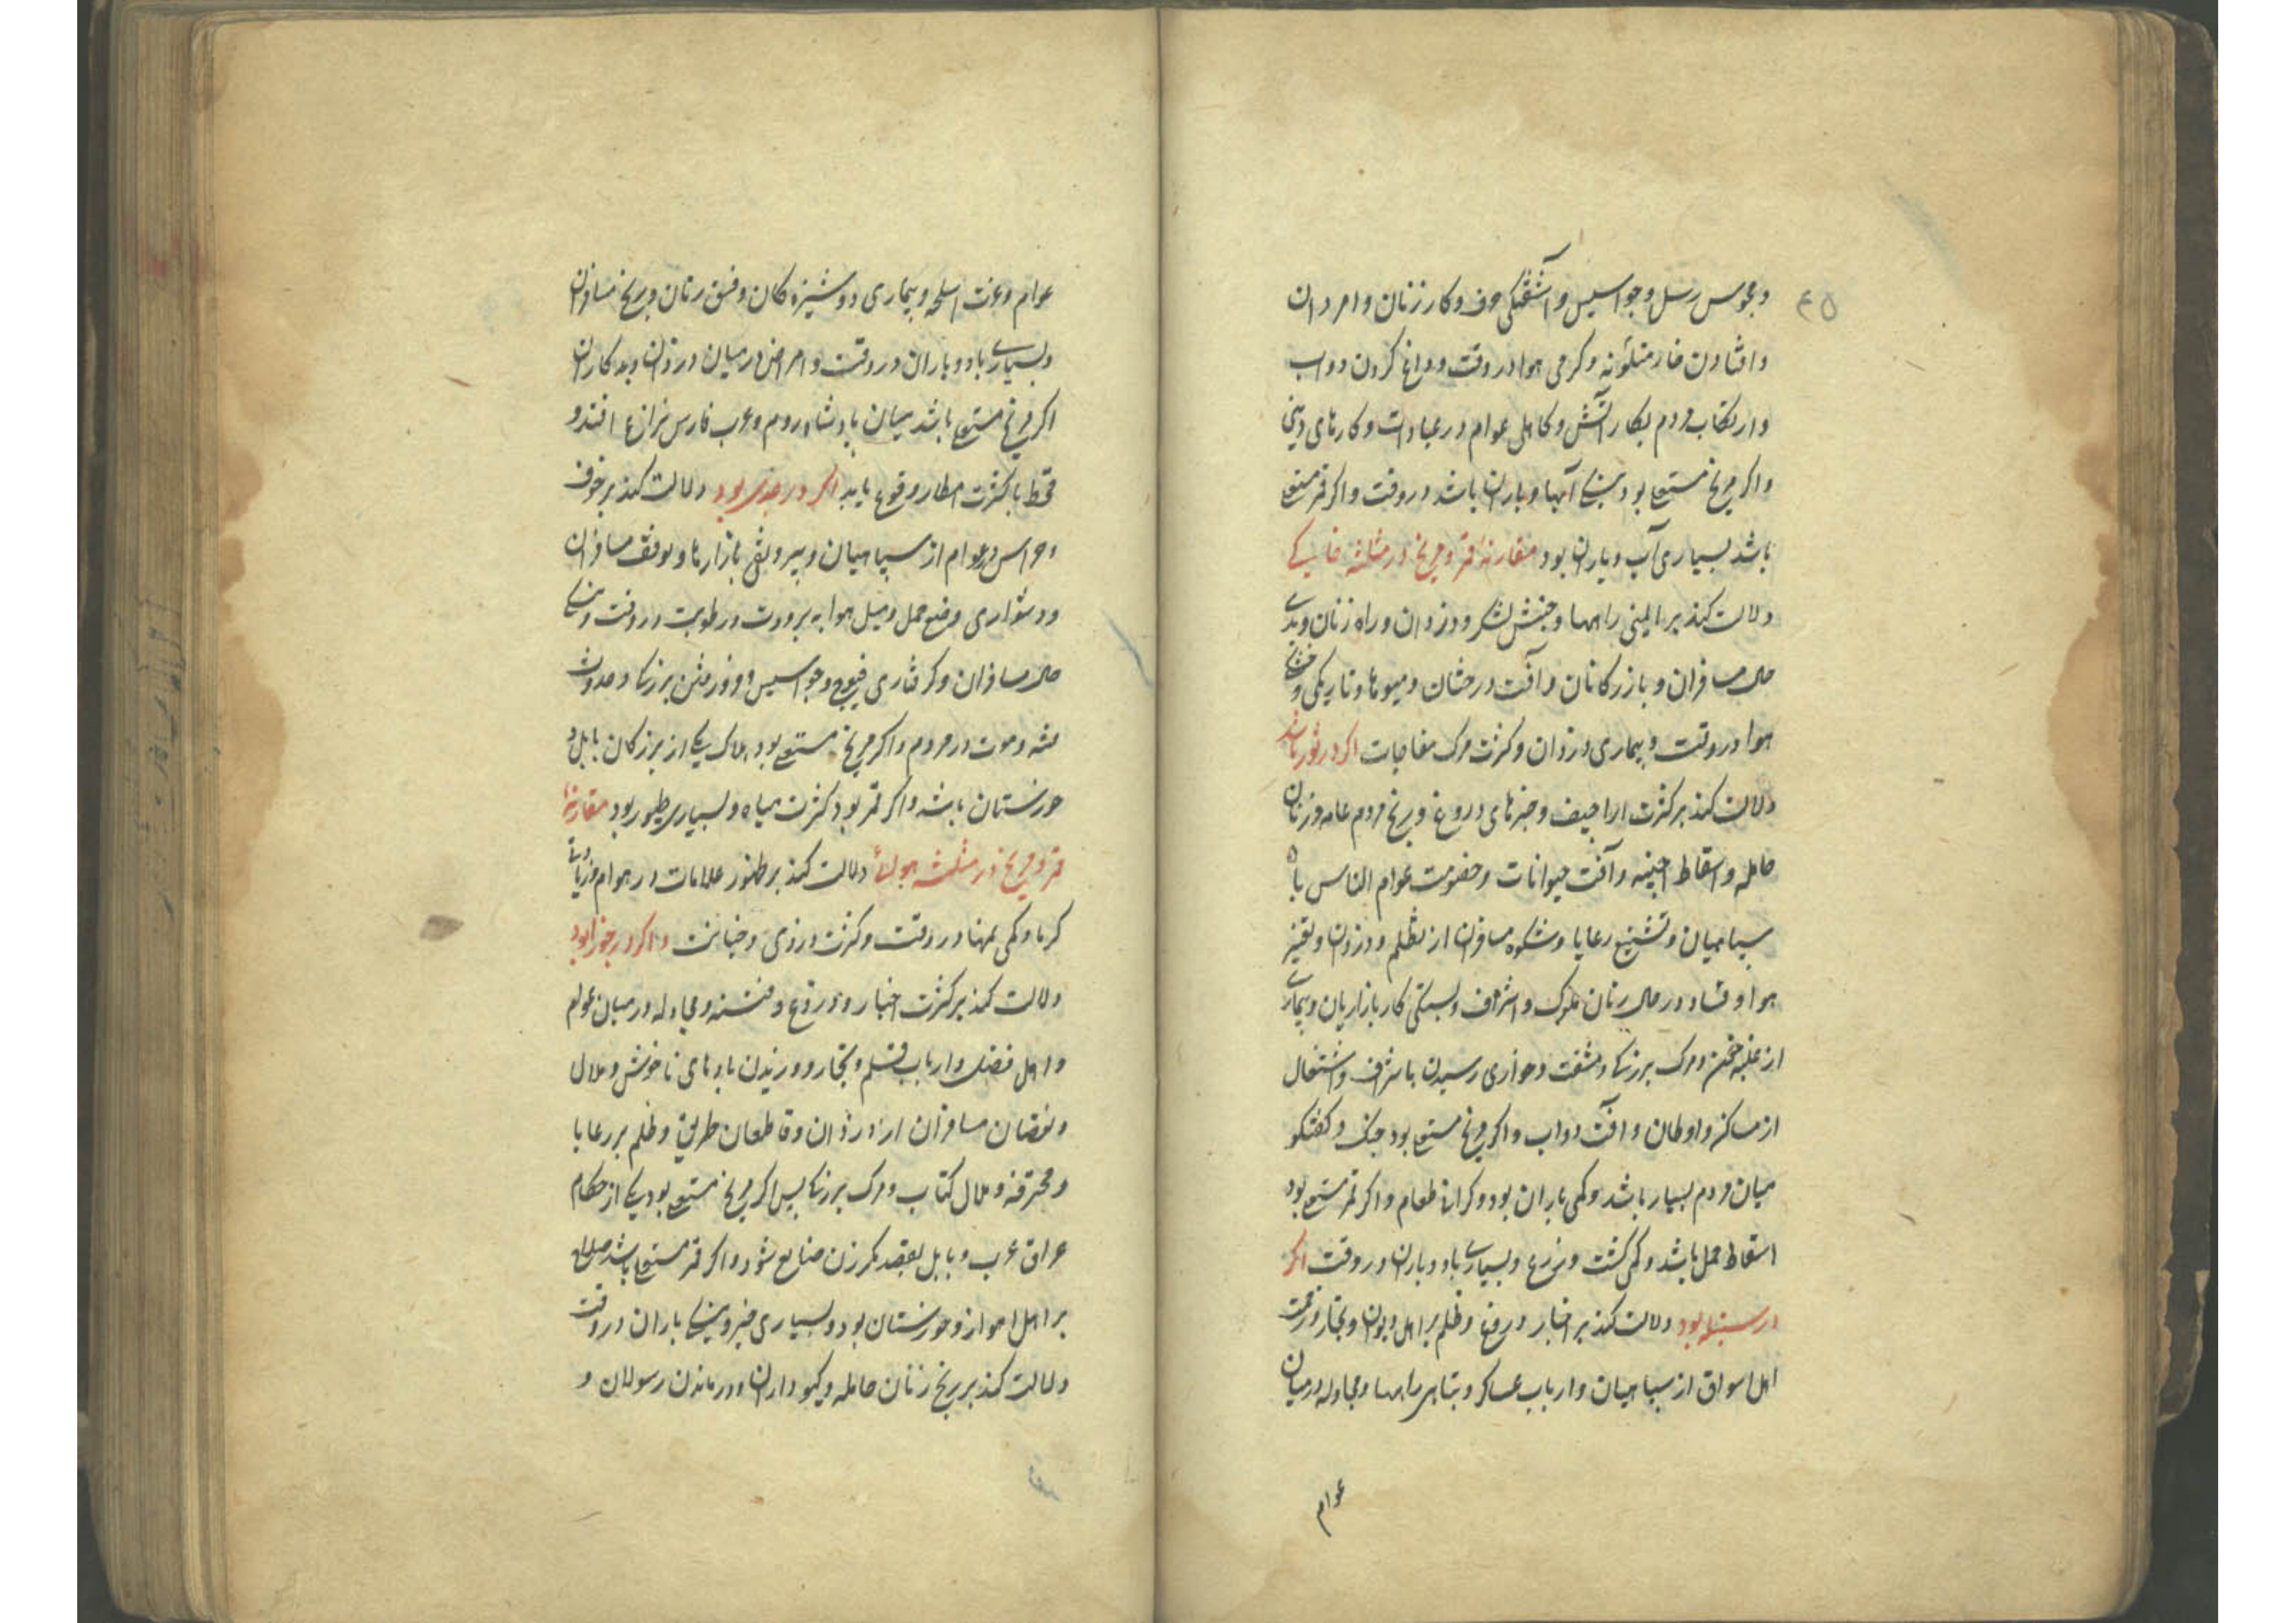 ۴۵
و محبوس رسل و جواسیس و آشفتکی حرف و کار زنان و امردان
و افتادن خار متلونه و کرمی هوا در وقت و داغ کردن دواب
و ارتکاب مردم بکار آتش و کاهلی عوام در عبادات و کارهای دینی
و اکر مریخ مستعلی بود بیشی آبها و باران باشد در وقت و اکر قمر مستعلی
باشد بسیاری آب و باران بود مقارنهٔ قمر و مریخ در مثلثه خاکی
دلالت کند بر ایمنی راهها و جنبش لشکر و دزدان و راه زنان و بدی
حال مسافران و بازرکانان و آفت درختان و میوها و تاریکی و خشکی
هوا در وقت و بیماری دزدان و کثرت مرک مفاجات اکر در ثور باشد
دلالت کند بر کثرت اراجیف و خبرهای دروغ و رنج مردم عامه و زنان
حامله و اسقاط اجنه و آفت حیوانات و خصومت عوام الناس با
سپاهیان و تشنیع رعایا و شکوه مسافران از تظلم و دزدان و تغیر
هوا و فساد در حال زنان ملوک و اشراف و بستکی کار بازاریان و بیماری
از غلبه خون و مرک بزرکان و مشقت و خواری رسیدن باشراف و انتقال
از مساکن و اوطان و آفت دواب و اکر مریخ مستعلی بود جنک و کفتکو
میان مردم بسیار باشد و کمی باران بود و کرانی طعام و اکر قمر مستعلی بود
اسقاط حمل باشد و کمی کشت و زرع و بسیاری باد و باران در وقت اکر
در سنبله بود دلالت کند بر اخبار دروغ و ظلم بر اهل دیوان و تجار و زحمت
اهل اسواق از سپاهیان و ارباب عساکر و تباهی راهها و مجادله در میان
عوام
عوام و عزت اسلحه و بیماری دوشیزه کان و فسق زنان و رنج مسافران
و بسیاری باد و باران در وقت و امراض در میان دزدان و بدکاران
اکر مریخ مستعلی باشد میان پادشاه روم و عرب فارس نزاع افتد و
قحط با کثرت امطار وقوع یابد اکر در جدی بود دلالت کند بر خوف
و هراس عوام از سپاهیان و بی رونقی بازارها و توقف مسافران
و دشواری وضع حمل و میل هوا به برودت و رطوبت در وقت و
حال مسافران و کرفتاری فیوج و جواسیس و بزرکان و حدوث
فتنه و موت در مردم و اکر مریخ مستعلی بود هلاک یکی از بزرکان بابل و
خوزستان باشد و اکر قمر بود کثرت میاه و بسیاری طیور بود مقارنهٔ
قمر و مریخ در مثلثه هوائی دلالت کند بر ظهور علامات در هوا و زیادتی
کرما و کمی نمها در وقت و کثرت دزدی و خیانت و اکر در جوزا بود
دلالت کند بر کثرت اخبار دروغ و فتنه و مجادله در میان عوام
و اهل فضل و ارباب قلم و تجار و وزیدن بادهای ناخوش و ملال
و نقصان مسافران از دزدان و قاطعان طریق و ظلم بر رعایا
و محترفه و ملال کتاب و مرک بزرکان پس اکر مریخ مستعلی بود یکی از حکام
عراق عرب و بابل بقصد مکر زن ضایع شود و اکر قمر مستعلی باشد
بر اهل اهواز و خوزستان بود و بسیاری خیر و بیشی باران در وقت
دلالت کند بر رنج زنان حامله و درماندن رسولان و